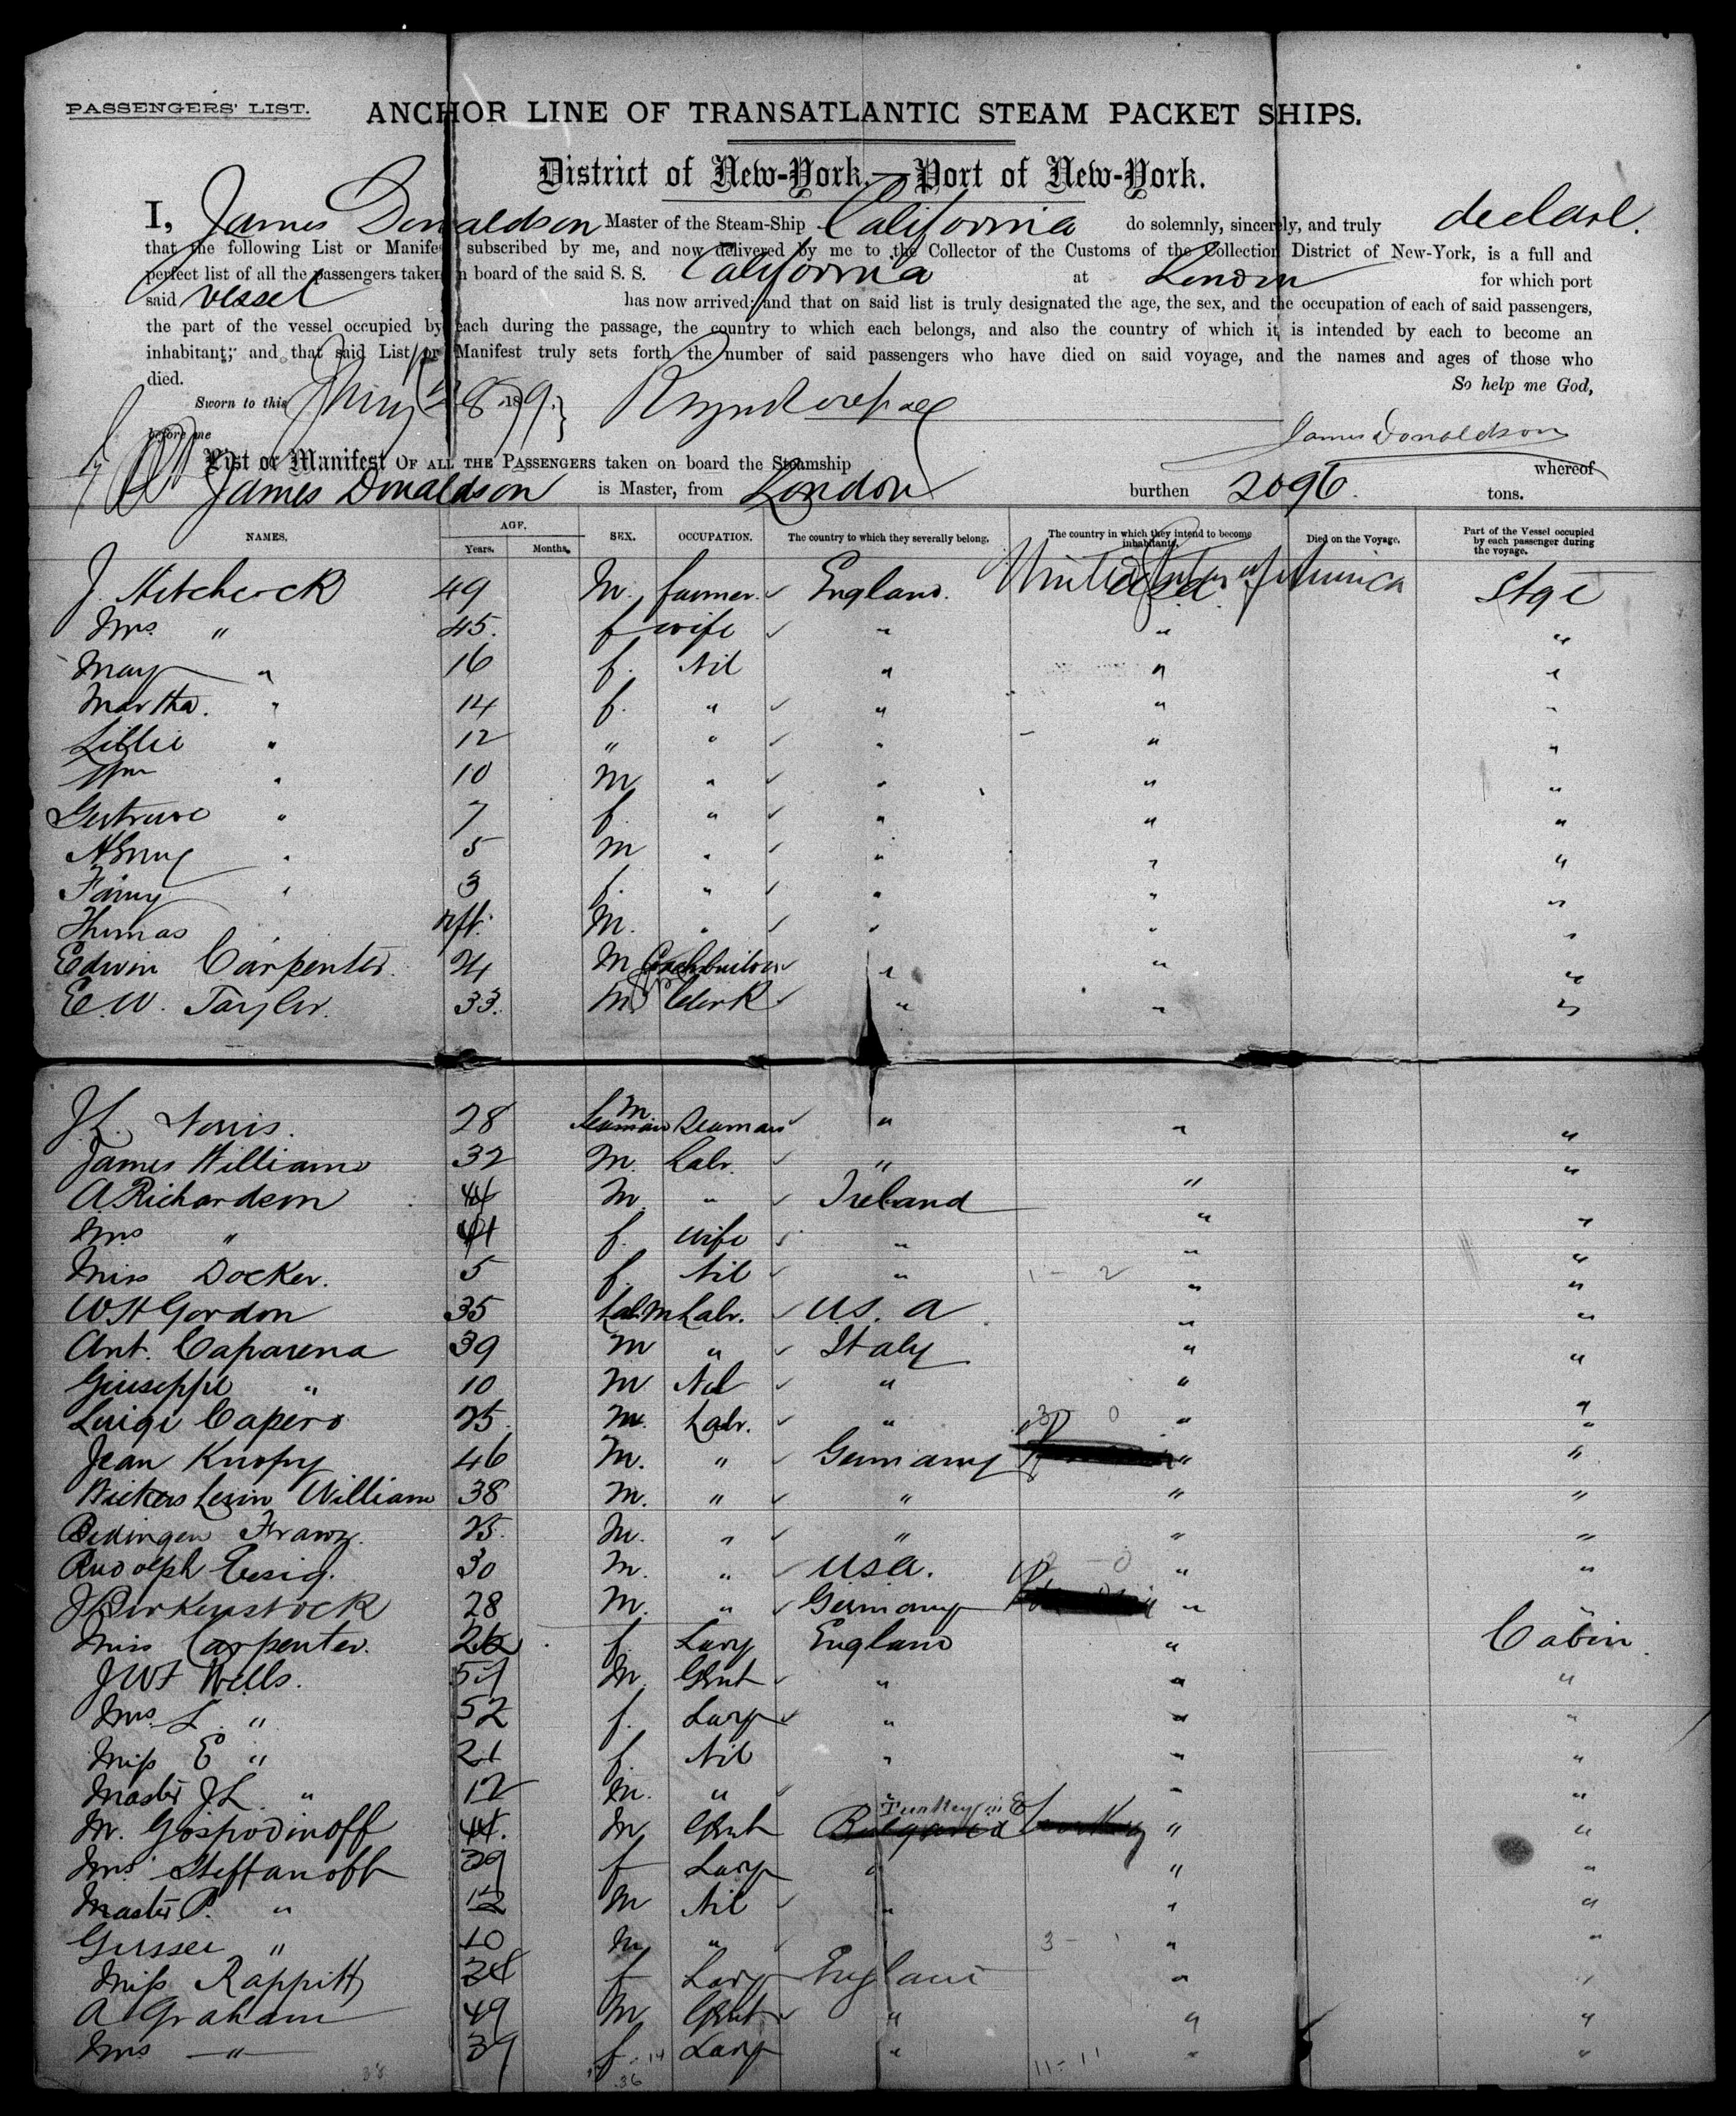 PASSENGERS' LIST. ANCHOR LINE OF TRANSATLANTIC STEAM PACKET SHIPS.
District of New-York.—Port of New-York.
I, James Donaldson Master of the Steam-Ship California do solemnly, sincerely, and truly declare.
that the following List or Manifest subscribed by me, and now delivered by me to the Collector of the Customs of the Collection District of New-York, is a full and
perfect list of all the passengers taken on board of the said S. S. California at London for which port
said vessel has now arrived; and that on said list is truly designated the age, the sex, and the occupation of each of said passengers,
the part of the vessel occupied by each during the passage, the country to which each belongs, and also the country of which it is intended by each to become an
inhabitant; and that said List or Manifest truly sets forth the number of said passengers who have died on said voyage, and the names and ages of those who
died. So help me God,
Sworn to this 189
before me James Donaldson
List or Manifest OF ALL THE PASSENGERS taken on board the Steamship whereof
James Donaldson is Master, from London burthen 2096. tons.
NAMES. AGE. SEX. OCCUPATION. The country to which they severally belong. The country in which they intend to become inhabitants. Died on the Voyage. Part of the Vessel occupied by each passenger during the voyage.
Years. Months.
J. Hitchcock 49 M. farmer. England. United States of America Stge
Mrs " 45. f wife " " "
May " 16 f. Nil " " "
Martha. " 14 f. " " " "
Lillie " 12 " " " " "
Wm " 10 M " " " "
Gertrude " 7 f. " " " "
" 5 M " " " "
Fanny " 3 f. " " " "
Thomas inft. M. " " " "
Edwin Carpenter. 24 M Coachbuilder " " "
E. W. Taylor. 33. M Clerk " " "
J. L. Norris. 28 M Seaman " " "
James Williams 32 M. Labr. " " "
A Richardson 44 M. " Ireland " "
Mrs " 41 f. wife " " "
Miss Docker. 5 f. Nil " " "
W H Gordon 35 M Labr. U.S. A " "
Ant. Caparena 39 M " Italy " "
Giuseppe " 10 M Nil " " "
Luigi Capero 25. M. Labr. " " "
Jean Knopy 46 M. " Germany " "
William 38 M. " " " "
Franz. 25. M. " " " "
Rudolph Essig. 30 M. " USA. " "
J Birkenstock 28 M. " Germany " "
Miss Carpenter. 26 f. Lady England " Cabin
J W Wells. 51 M. Gent " " "
Mrs L. " 52 f. Lady " " "
Miss E " 21 f. Nil " " "
Master J L. " 12 M. " " " "
M. Gospodinoff 44. M Gent Bulgaria Turkey in E " "
Mrs Steffanoff 39 f Lady " " "
Master P. " 12 M Nil " " "
Gussee " 10 M " " "
Miss Rappitt 24 f Lady England " "
A Graham 49 M Gent " " "
Mrs " 39 f. Lady " " "